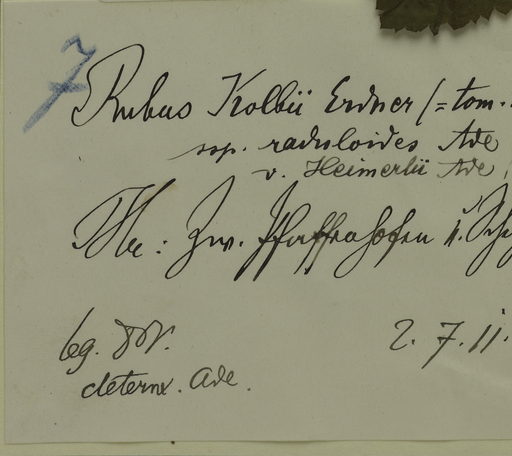 7
Rubus Kolbii Erdner (= tom.
ssp. raduloides Ade
v. Heimerlii Ade
Zw. Pfaffenhofen u.
leg.
determ. Ade.
2. 7. 11.